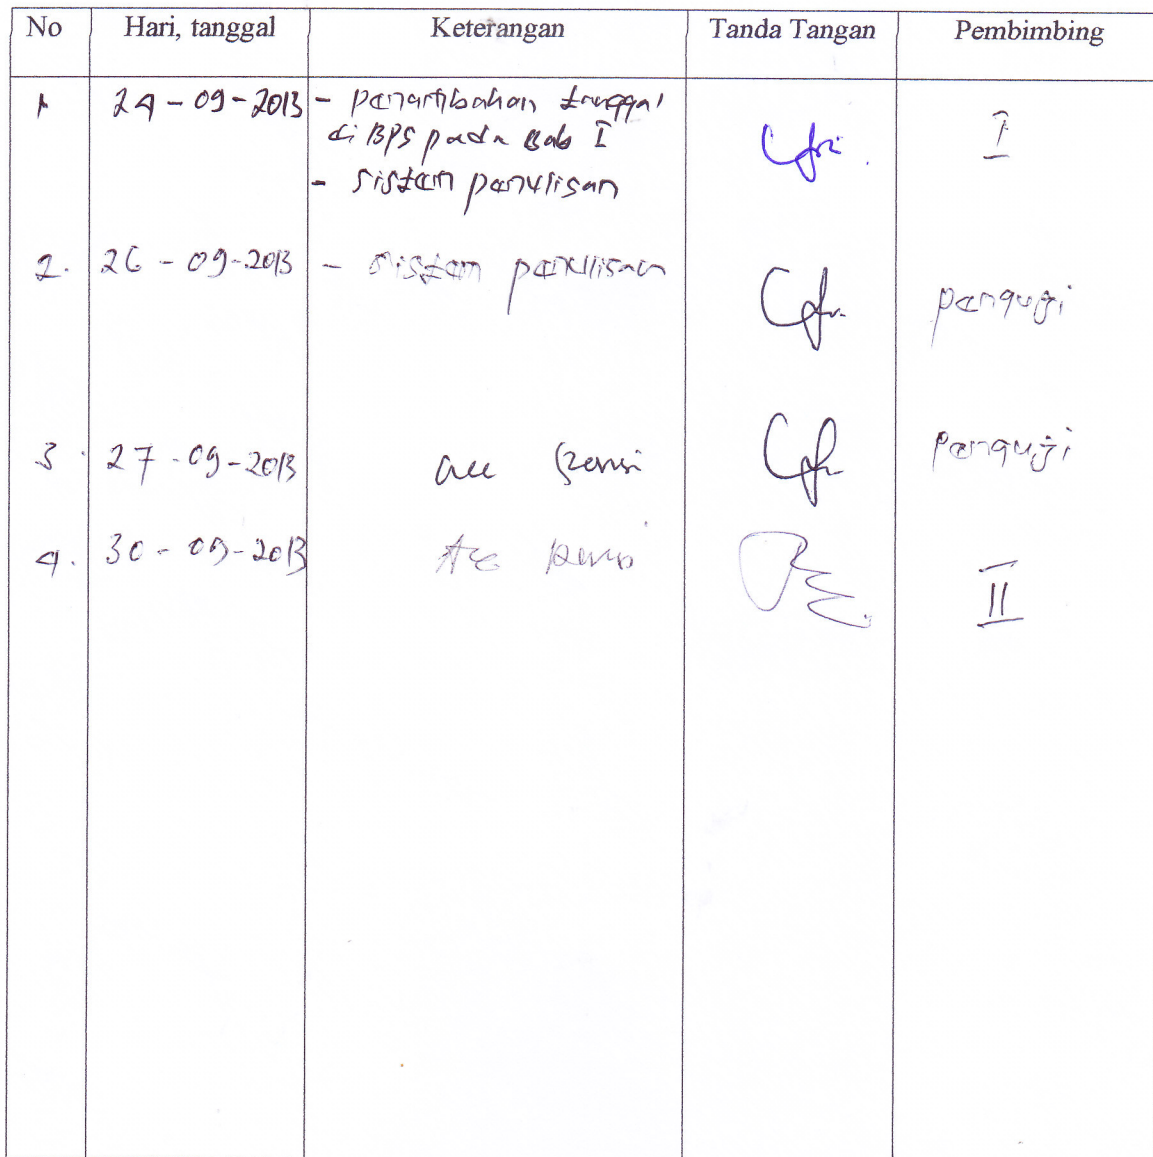 No Hari, tanggal Keterangan Tanda Tangan Pembimbing
1 24-09-2013 - penambahan tanggal
di BPS pada Bab I
- sistem penulisan
I
2. 26-09-2013 - sistem penulisan
penguji
3. 27-09-2013 acc revisi penguji
4. 30-09-2013 Acc revisi
II